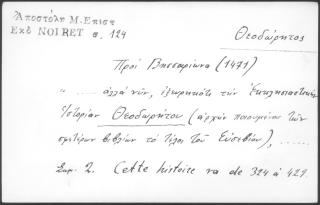 Ἀποστόλη Μ. Επιστ
Εκδ NOIRET σ. 124
Θεοδώρητος
Πρός Βησσαρίωνα (1471)
" ..... ἀλλά νῦν, εὑρηκότι τήν Ἐκκλησιαστικήν
Ἱστορίαν Θεοδωρήτου (ἀρχήν ποιουμένου τῶν
σφετέρων βιβλίων τό τέλος τοῦ Εὐσεβίου), .......
2. Cette histoire va de 324 à 429.